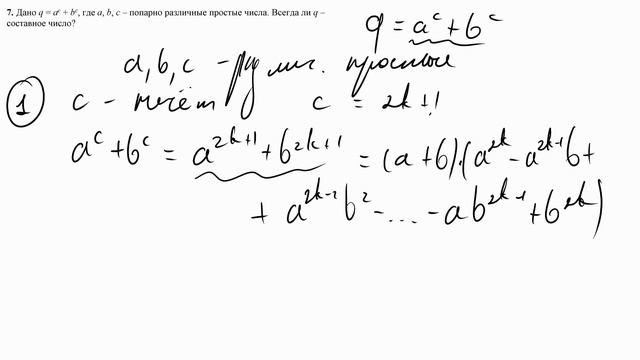 7. Дано q = aᶜ + bᶜ, где a, b, c – попарно различные простые числа. Всегда ли q –
составное число?
q = aᶜ + bᶜ
a, b, c - различ. простые
① c - нечёт c = 2k+1
aᶜ + bᶜ = a²ᵏ⁺¹ + b²ᵏ⁺¹ = (a+b)·(a²ᵏ - a²ᵏ⁻¹b +
+ a²ᵏ⁻²b² - ... - ab²ᵏ⁻¹ + b²ᵏ)